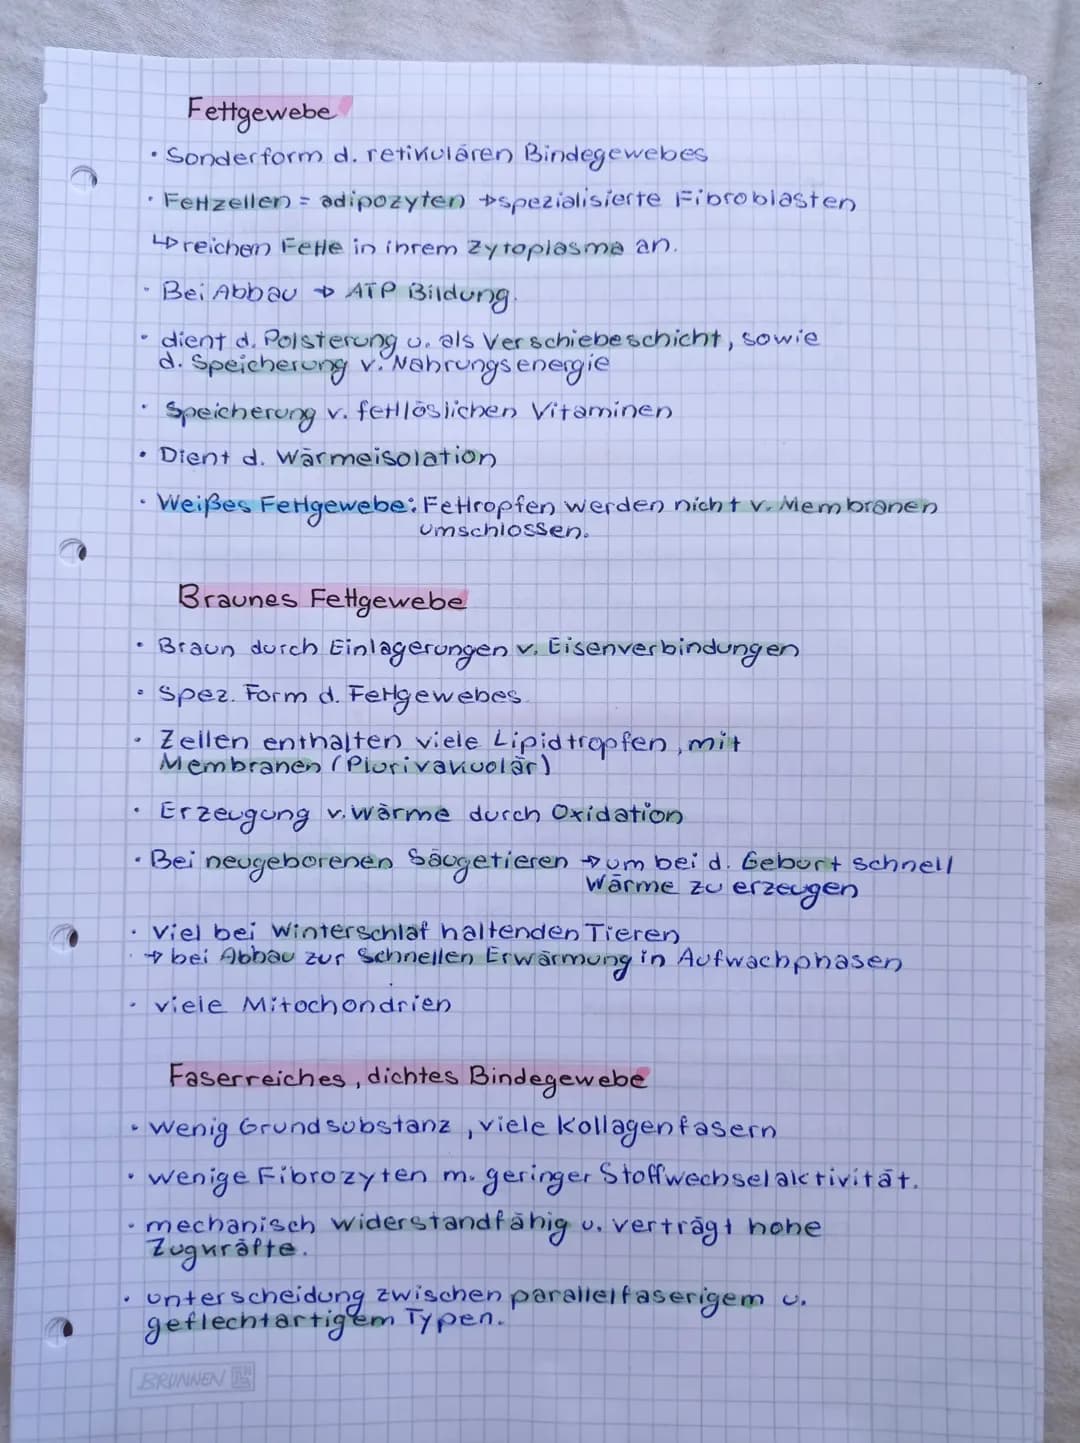 Fettgewebe
• Sonderform d. retikulären Bindegewebes
• Fettzellen = adipozyten → spezialisierte Fibroblasten
↳ reichen Fette in ihrem Zytoplasma an.
• Bei Abbau → ATP Bildung.
• dient d. Polsterung u. als Verschiebeschicht, sowie
d. Speicherung v. Nahrungsenergie
• Speicherung v. fettlöslichen Vitaminen
• Dient d. Wärmeisolation
• Weißes Fettgewebe: Fettropfen werden nicht v. Membranen
umschlossen.
Braunes Fettgewebe
• Braun durch Einlagerungen v. Eisenverbindungen
• Spez. Form d. Fettgewebes.
• Zellen enthalten viele Lipidtropfen, mit
Membranen (Plurivakuolär)
• Erzeugung v. Wärme durch Oxidation
• Bei neugeborenen Säugetieren → um bei d. Geburt schnell
Wärme zu erzeugen
• viel bei Winterschlaf haltenden Tieren
→ bei Abbau zur Schnellen Erwärmung in Aufwachphasen
• viele Mitochondrien
Faserreiches, dichtes Bindegewebe
• wenig Grundsubstanz, viele Kollagenfasern
• wenige Fibrozyten m. geringer Stoffwechselaktivität.
• mechanisch widerstandfähig u. verträgt hohe
Zugkräfte.
• unterscheidung zwischen parallelfaserigem u.
geflechtartigem Typen.
BRUNNEN